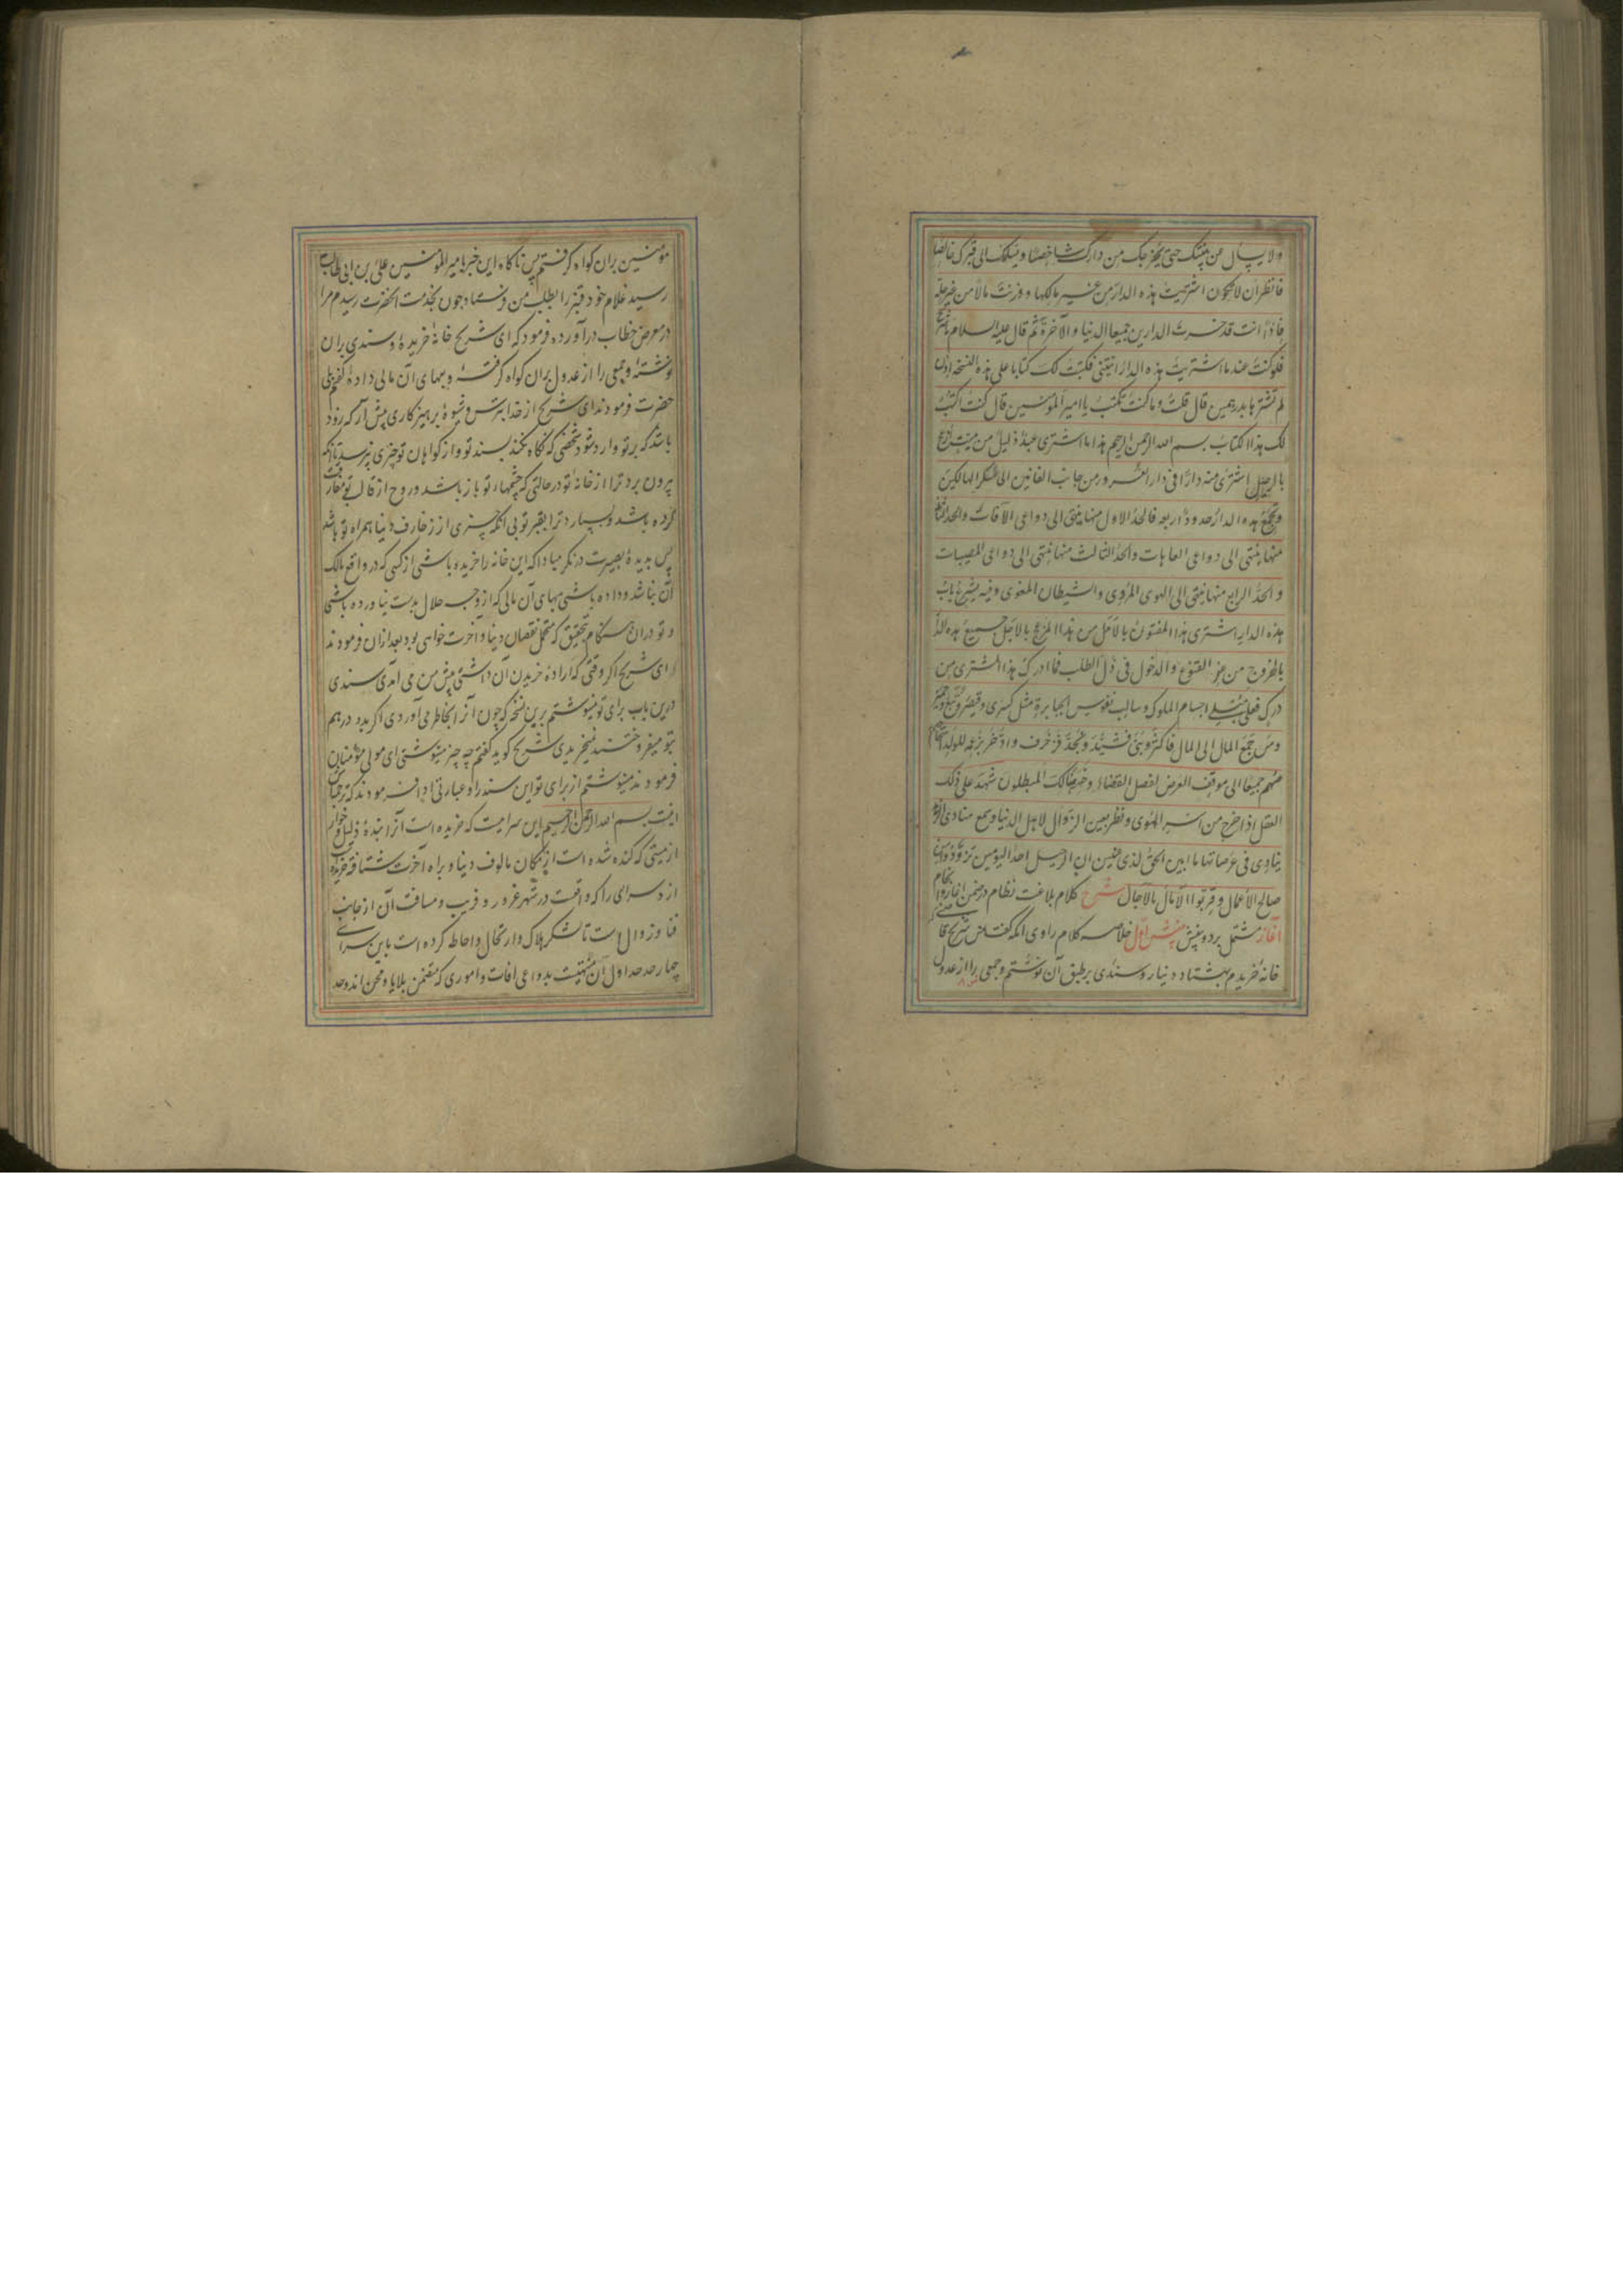 ولا یسأل عن بیتک حتی یخرجک من دارک شاخصا ویسلمک الی قبرک خالصا
فانظر ان لا تکون اشتریت هذه الدار من غیر مالکها و وزنت مالا من غیر حله
فاذا انت قد خسرت الدارین جمیعا الدنیا والآخرة ثم قال علیه السلام یا شریح
فلو کنت عندما اشتریت هذه الدار اتیتنی فکتبت لک کتابا علی هذه النسخه اذن
لم تشترها بدرهمین قال قلت وما کنت تکتب یا امیر المؤمنین قال کنت اکتب
لک هذا الکتاب بسم الله الرحمن الرحیم هذا ما اشتری عبد ذلیل من میت ازعج
بالرحیل اشتری منه دارا فی دار الغرور من جانب الفانین الی عسکر الهالکین
وتجمع هذه الدار حدود اربعه فالحد الاول منها ینتهی الی دواعی الآفات والحد الثانی
منها ینتهی الی دواعی العاهات والحد الثالث منها ینتهی الی دواعی المصیبات
والحد الرابع منها ینتهی الی الهوی المردی والشیطان المغوی وفیه یشرع باب
هذه الدار اشتری هذا المفتون بالامل من هذا المزعج بالاجل جمیع هذه الدار
بالخروج من عز القنوع والدخول فی ذل الطلب فما ادرک هذا المشتری من
درک فعلی مبلی اجسام الملوک وسالب نفوس الجبابرة مثل کسری وقیصر وتبع وحمیر
ومن جمع المال الی المال فاکثر وبنی فشید ونجد فزخرف وادخر بزعمه للولد
منهم جمیعا الی موقف العرض لفصل القضاء وخسر هنالک المبطلون شهد علی ذلک
العقل اذا خرج من اسر الهوی ونظر بعین الزوال لاهل الدنیا وسمع منادی الزهد
ینادی فی عرصاتها ما ابین الحق لذی عینین ان الرحیل احد الیومین تزودوا من
صالح الاعمال وقربوا الآمال بالآجال شرح کلام بلاغت نظام در ضمن
آغاز مشتمل بر دو بخش بخش اول خلاصه کلام راوی آنکه گفت شریح قاضی که
خانه خریدم بهشتاد دینار وسندی بر طبق آن نوشتم وجمعی را از عدول
مؤمنین بران کواه گرفتم پس ناکاه این خبر بامیر المؤمنین علی بن ابی طالب
رسید غلام خود قنبر را بطلب من فرستاد چون بخدمت آنحضرت رسیدم مرا
در معرض خطاب درآورده فرمود که ای شریح خانه خریدهٔ وسندی بران
نوشتهٔ وجمعی را از عدول بران کواه گرفتهٔ وبهای آن مالی دادهٔ گفتم بلی
حضرت فرمودند ای شریح از خدا بترس وشیوهٔ پرهیزکاری پیش آر که زود
باشد که بر تو وارد شود شخصی که نکاه نکند بسند تو واز کواهان تو چیزی نپرسد تا آنکه
بیرون برد ترا از خانه تو در حالتی که چشمهای تو باز باشد وروح از قالب تو مفارقت
کرده باشد وبسپارد ترا بقبر تو بی آنکه چیزی از زخارف دنیا همراه تو باشد
پس بدیدهٔ بصیرت درنکر مبادا که این خانه را خریده باشی از کسی که در واقع مالک
آن نباشد وداده باشی بهای آن مالی که از وجه حلال بدست نیاورده باشی
وتو دران هنکام بتحقیق که متحمل نقصان دنیا وآخرت خواهی بود بعد ازان فرمودند
ای شریح اکر وقتی که ارادهٔ خریدن آن داشتی پیش من می آمدی سندی
درین باب برای تو مینوشتم برین نسخه که چون آنرا بخاطر می آوردی اکر بدو درهم
بتو میفروختند نمیخریدی شریح کوید گفتم چه چیز مینوشتی ای مولی مؤمنان
فرمودند مینوشتم از برای تو این سند را وعبارتی ادا فرمودند که ترجمهاش
اینست بسم الله الرحمن الرحیم این سرایست که خریده است آنرا بندهٔ ذلیل وخوار
از میتی که کنده شده است از مکان مالوف دنیا وبراه آخرت شتافته خریده
ازو سرای را که واقعست در شهر غرور وفریب ومسافت آن از جانب
فنا وزوال است تا لشکر هلاک وارتحال واحاطه کرده است باین سرای
چهار حد حد اول آن منتهیست بدواعی آفات واموری که متضمن بلایا ومحن اند وحد